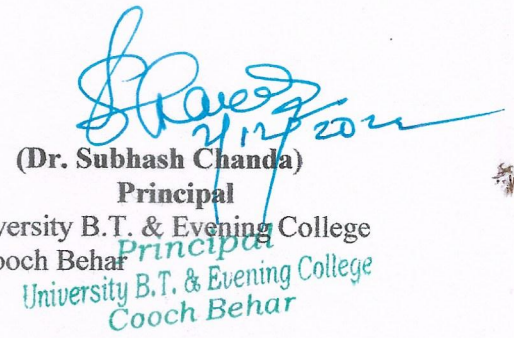 2/12/2022
(Dr. Subhash Chanda)
Principal
versity B.T. & Evening College
ooch Behar
Principal
University B.T. & Evening College
Cooch Behar